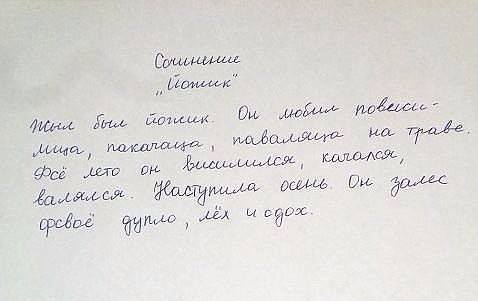 Сочинение
„Йожик"
Жыл был йожик. Он любил повиси-
мица, пакачаца, паваляца на траве.
Фсё лето он висимился, качался,
валялся. Наступила осень. Он залес
фсваё дупло, лёх и сдох.